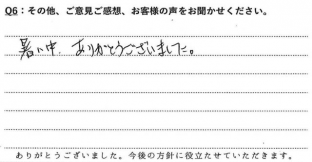 Q6：その他、ご意見ご感想、お客様の声をお聞かせください。
暑い中、ありがとうございました。
ありがとうございました。今後の方針に役立たせていただきます。